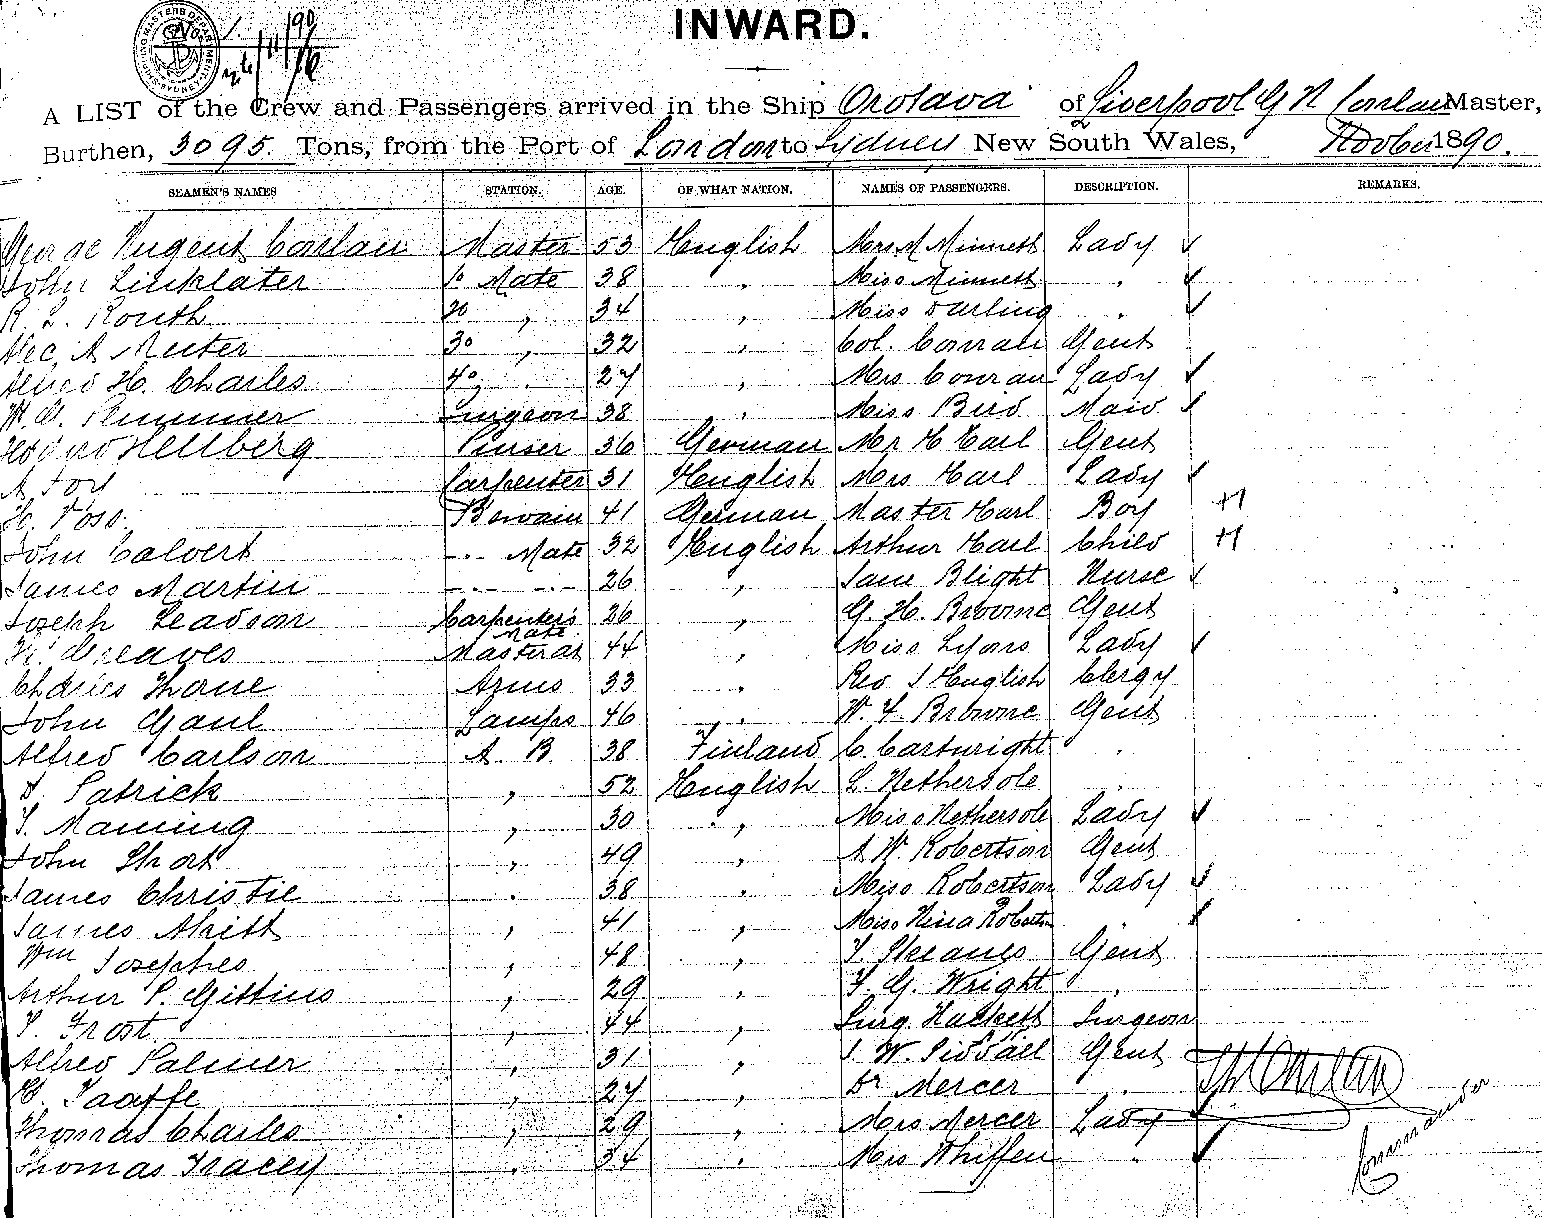 INWARD.
SHIPPING MASTERS DEPARTMENT SYDNEY
A LIST of the Crew and Passengers arrived in the Ship Orotava of Liverpool G N Conlan Master,
Burthen, 3095. Tons, from the Port of London to Sydney New South Wales, 1890.
SEAMEN'S NAMES STATION. AGE. OF WHAT NATION. NAMES OF PASSENGERS. DESCRIPTION. REMARKS.
George Nugent Conlan Master 53 English Mrs M Minnett Lady
John Linklater 1o Mate 38 " Miss Minnett "
R. L. Routh 2o " 34 " Miss Darling "
Alec A 3o " 32 " Col. Conran Gent
Alfred H. Charles 4o " 27 " Mrs Conran Lady
Plummer Surgeon 38 " Miss Bird Maid
Hellberg Purser 36 German Mr H Earl Gent
A Foy Carpenter 31 English Mrs Earl Lady
H. Voss. 41 German Master Earl Boy H
John Calvert " Mate 32 English Arthur Earl Child H
James Martin " " 26 " Jane Blight Nurse
Joseph Leadson Carpenter's Mate 26 " G. H. Broome Gent
Greaves Master at 44 " Miss Lyons Lady
Charles Thorne Arms 33 " Rev J English Clergy
John Gaul Lamps 46 " W. F. Browne Gent
Alfred Carlson A. B. 38 Finland C. Cartwright "
Patrick " 52 English L. Nethersole "
T. Manning " 30 " Miss Nethersole Lady
John Short " 49 " A W. Robertson Gent
James Christie " 38 " Miss Robertson Lady
James " 41 " Miss Nina Robertson "
Wm Josephs " 48 " Gent
Arthur P. Gittins " 29 " F. G. Wright "
T. Frost. " 44 " Surg. Hackett Surgeon
Alfred Palmer 31 " J W. Siddall Gent
Taaffe " 27 " Dr Mercer "
Thomas Charles " 29 " Mrs Mercer Lady
Thomas Tracey " 34 " Mrs Whiffen "
Commander